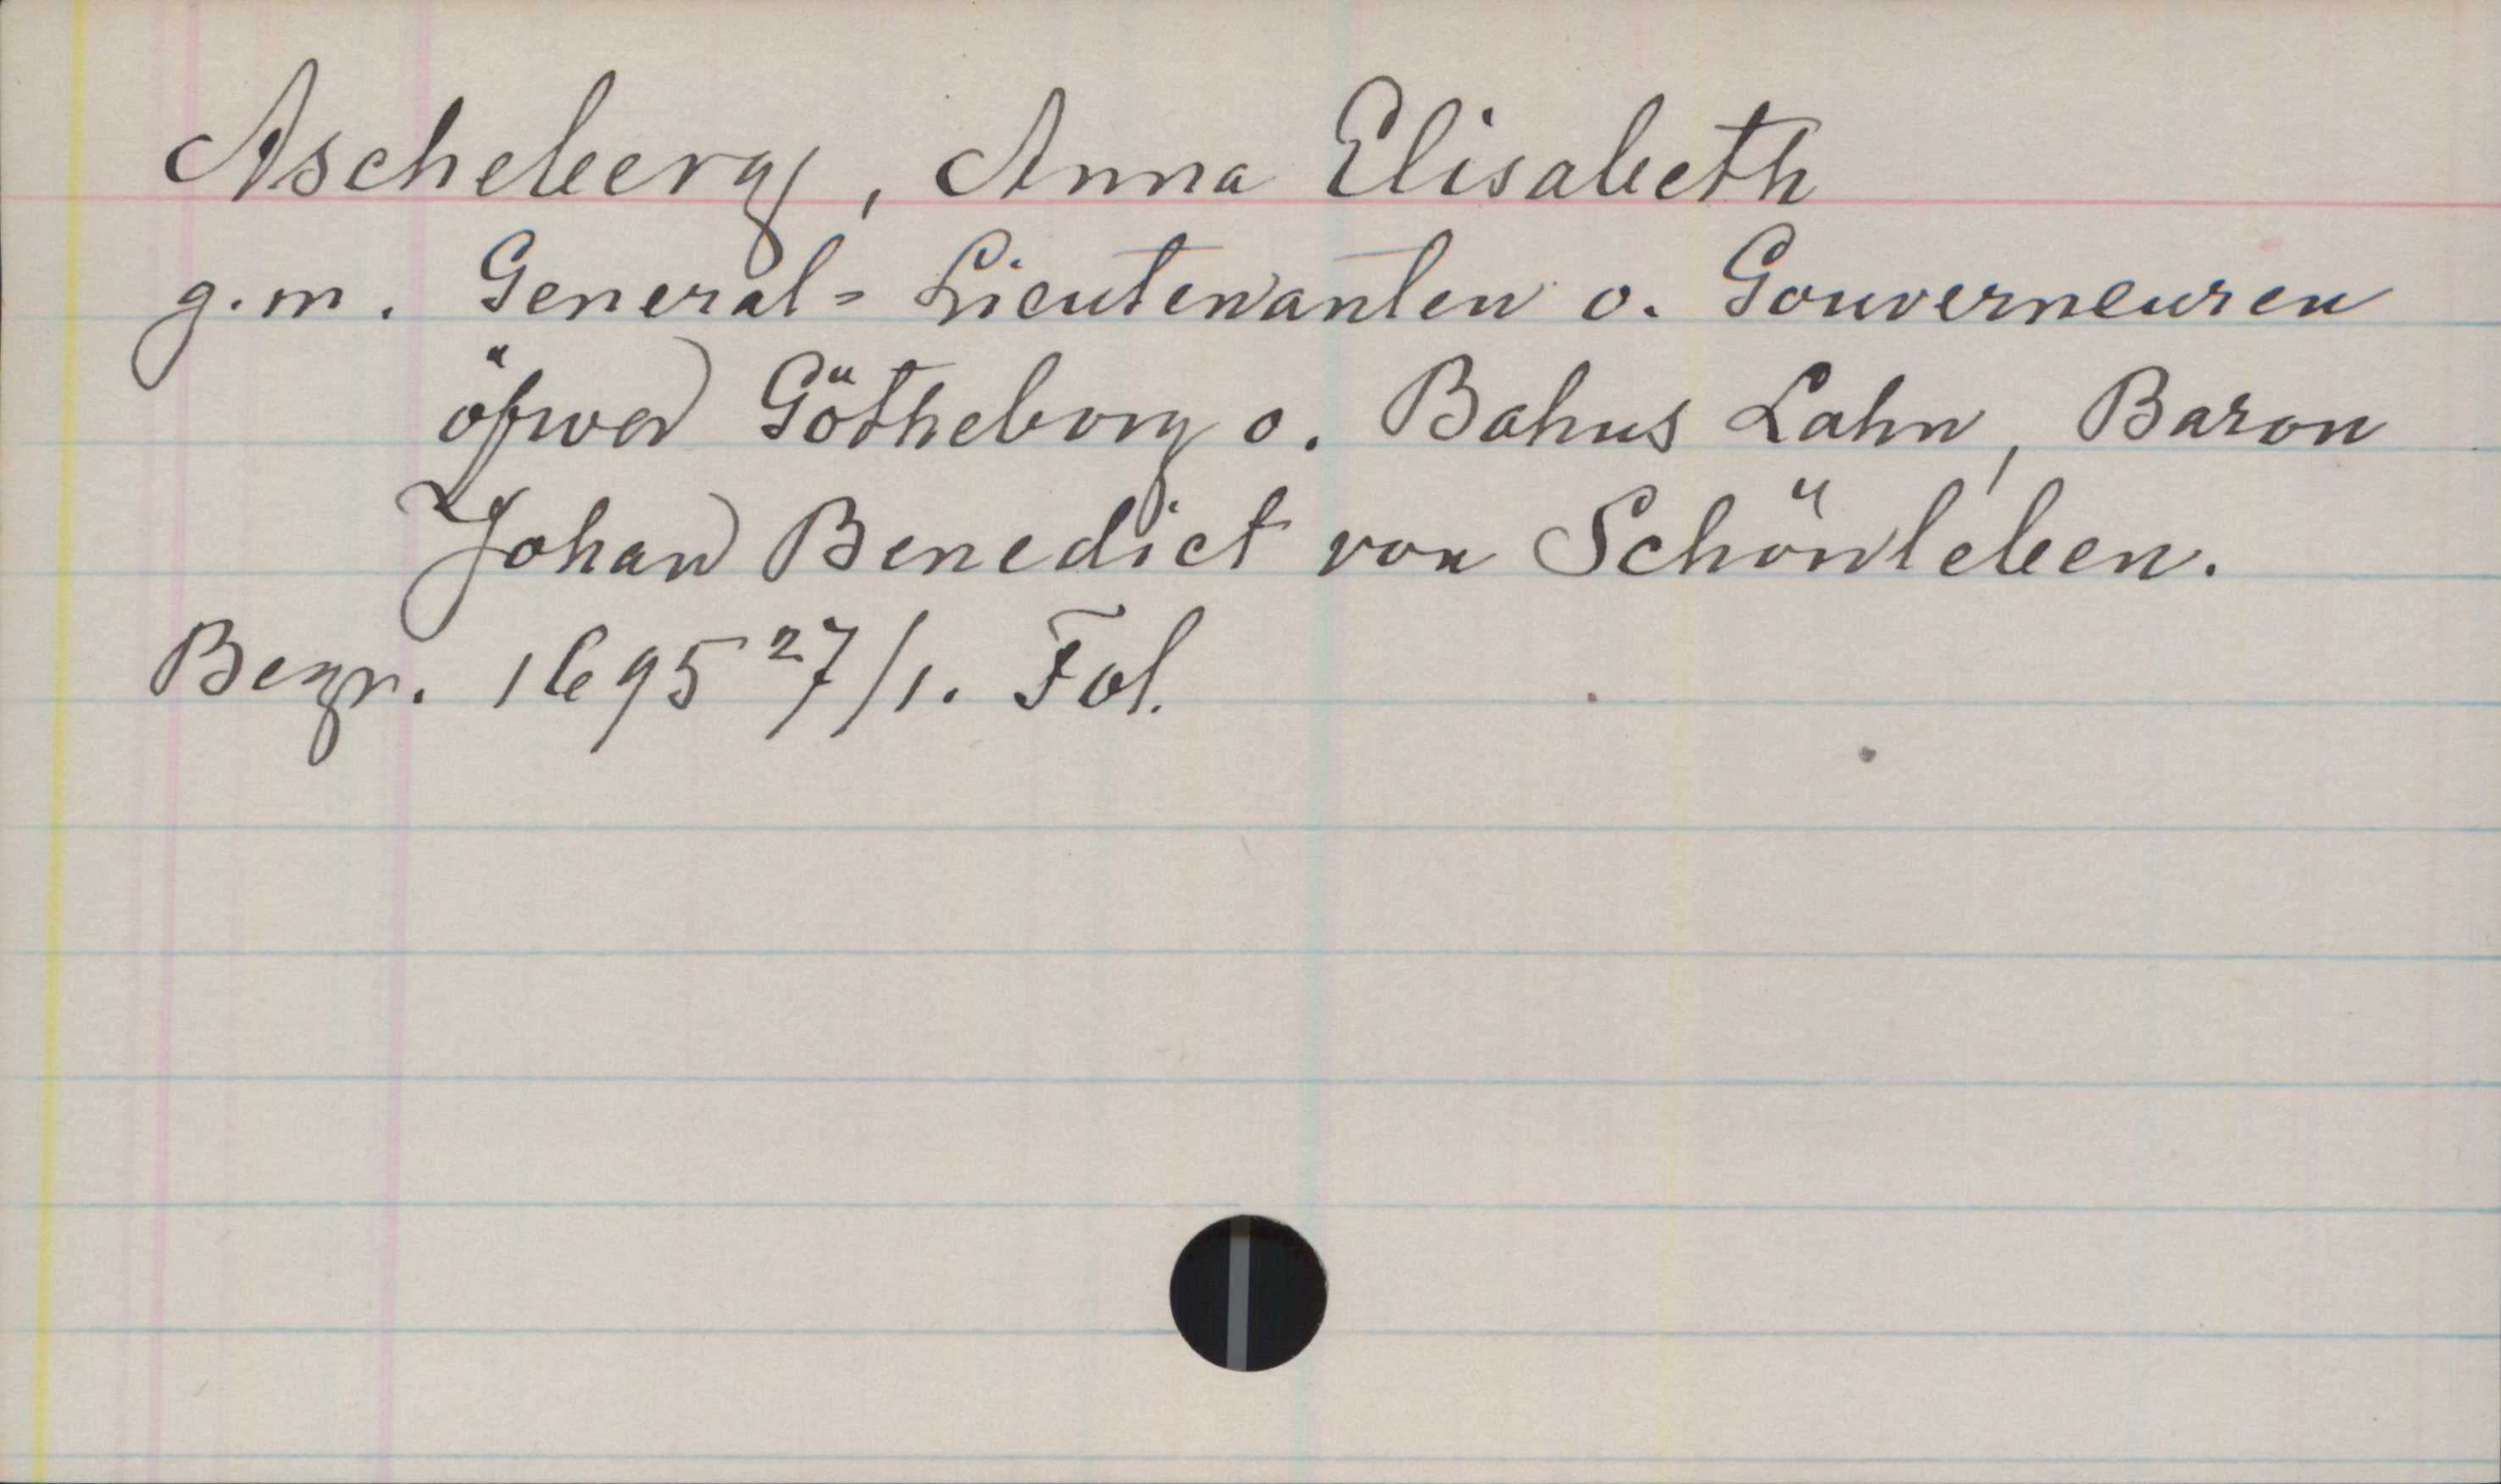 Ascheberg, Anna Elisabeth
g.m. General=Lieutenanten o. Gouverneuren
öfwer Götheborg o. Bahus Lähn, Baron
Johan Benedict von Schönleben.
Begr. 1695 27/1. Fol.